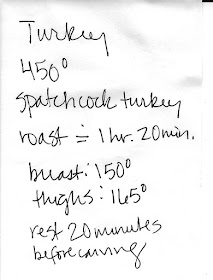 Turkey
450°
spatchcock turkey
roast ≐ 1 hr. 20 min.
breast: 150°
thighs: 165°
rest 20 minutes
before carving